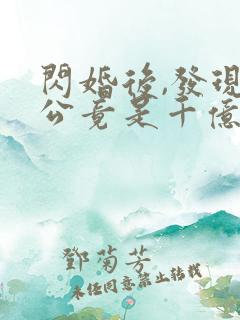 閃婚後,發現
公竟是千億
鄧菊芳
未經同意禁止轉載